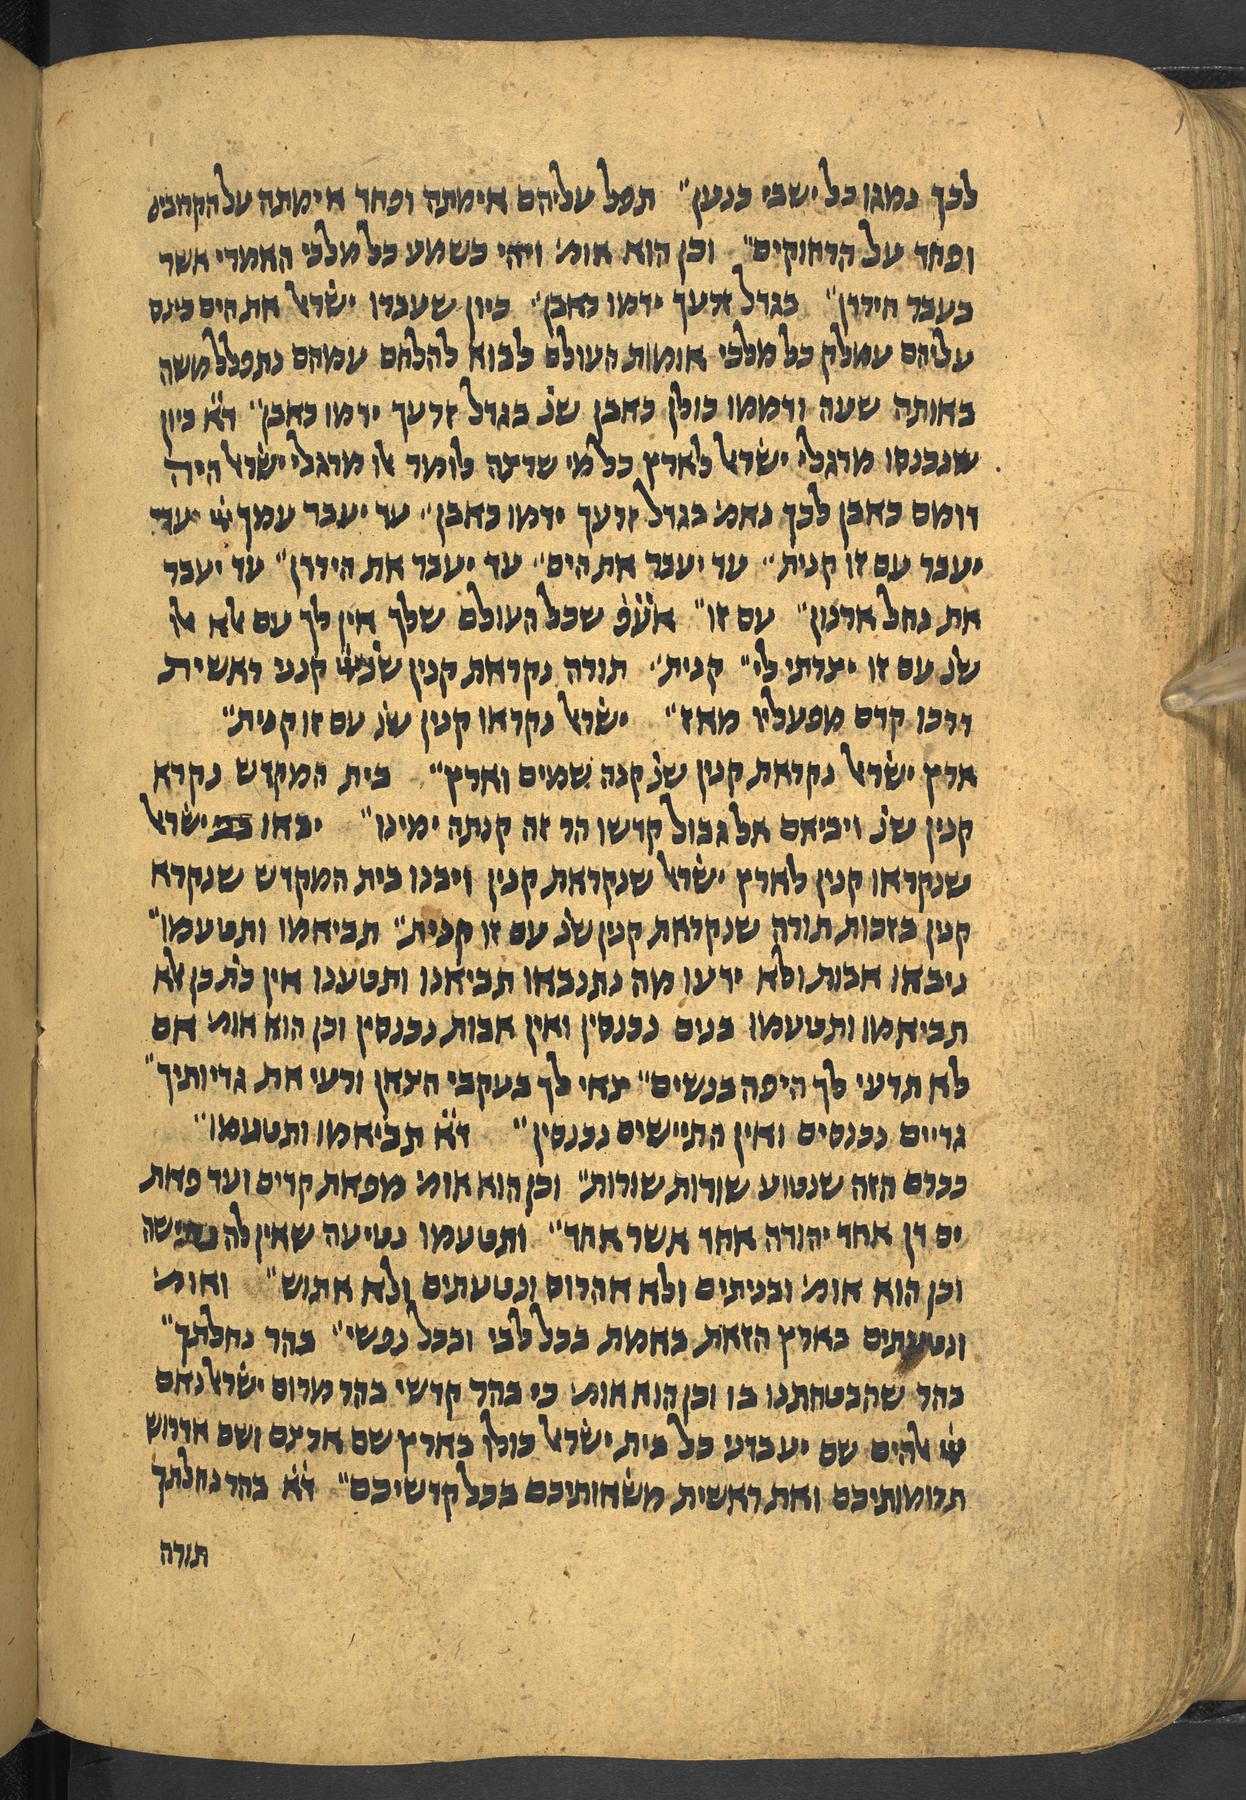 לכך נמגו כל ישבי כנען״ תפל עליהם אימתה ופחד אימתה על הקרובים
ופחד על הרחוקים״ וכן הוא אומ׳ ויהי כשמע כל מלכי האמרי אשר
בעבר הירדן״ בגדל זרעך ידמו כאבן״ כיון שעברו ישר׳אל את הים כינס
עליהם עמלק כל מלכי אומות העולם לבוא להלחם עמהם נתפלל משה
באותה שעה ודממו כולן כאבן שנ׳ בגדל זרעך ידמו כאבן״ ד״א כיון
שנכנסו מרגלי ישראל לארץ כל מי שרוצה לומר אלו מרגלי ישראל היה
דומם כאבן לכך נאמ׳ בגדל זרעך ידמו כאבן״ עד יעבר עמך ייי עד
יעבר עם זו קנית״ עד יעבר את הים״ עד יעבר את הירדן״ עד יעבר
את נחל ארנון״ עם זו״ אע״פ שכל העולם שלך אין לך עם אלא אלו
שנ׳ עם זו יצרתי לי״ קנית״ תורה נקראת קנין שנ׳ ייי קנני ראשית
דרכו קדם מפעליו מאז״ ישראל נקראו קנין שנ׳ עם זו קנית״
ארץ ישראל נקראת קנין שנ׳ קנה שמים וארץ״ בית המקדש נקרא
קנין שנ׳ ויביאם אל גבול קדשו הר זה קנתה ימינו״ יבאו בני ישראל
שנקראו קנין לארץ ישראל שנקראת קנין ויבנו בית המקדש שנקרא
קנין בזכות תורה שנקראת קנין שנ׳ עם זו קנית״ תביאמו ותטעמו״
ניבאו אבות ולא ידעו מה נתנבאו תביאנו ותטענו אין כת׳ כן אלא
תביאמו ותטעמו בנים נכנסין ואין אבות נכנסין וכן הוא אומ׳ אם
לא תדעי לך היפה בנשים״ צאי לך בעקבי הצאן ורעי את גדיותיך״
גדיים נכנסים ואין התיישים נכנסין״ ד״א תביאמו ותטעמו״
ככרם הזה שנטוע שורות שורות״ וכן הוא אומ׳ מפאת קדים ועד פאת
ים דן אחד יהודה אחד אשר אחד״ ותטעמו נטיעה שאין לה נתישה
וכן הוא אומ׳ ובניתים ולא אהרוס ונטעתים ולא אתוש״ ואומ׳
ונטעתים בארץ הזאת באמת בכל לבי ובכל נפשי״ בהר נחלתך״
בהר שהבטחתנו בו וכן הוא אומ׳ כי בהר קדשי בהר מרום ישראל נאם
ייי אלהים שם יעבדני כל בית ישראל כולו בארץ שם ארצם ושם אדרוש
תרומותיכם ואת ראשית משאותיכם בכל קדשיכם״ ד״א בהר נחלתך
תורה